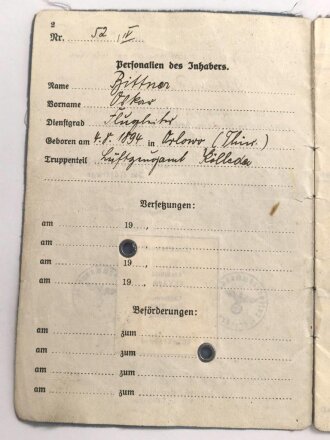 2
Nr. 52 IV
Personalien des Inhabers.
Name Bittner
Vorname Oskar
Dienstgrad Flugleiter
Geboren am 4.8.1894 in Orlowo (Thür.)
Truppenteil Luftzeugamt Kölleda
Versetzungen:
am 19 ,
am 19 ,
am 19 ,
am 19 ,
Beförderungen:
am zum
am zum
am zum
am zum